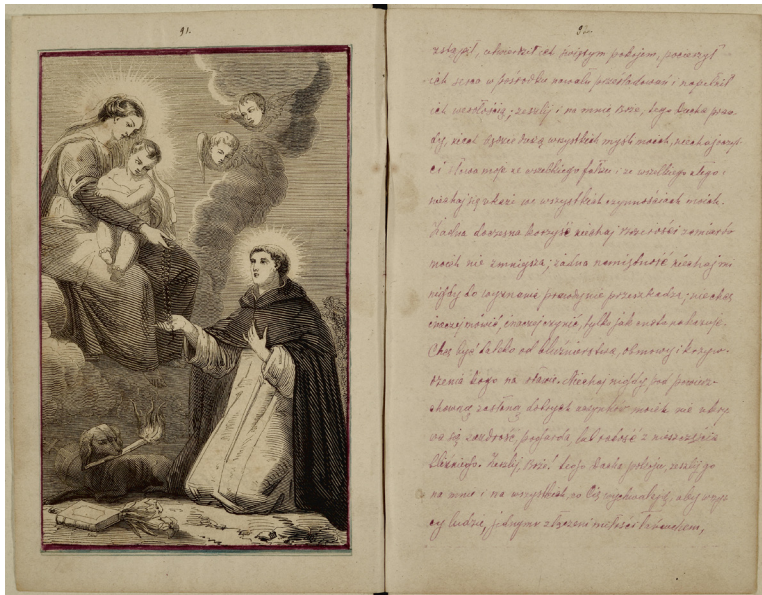 91.
92.
zstąpił, obdarził ich świętym pokojem, pocieszył
ich serca w pośrodku nawału prześladowań i napełnił
ich wesołością; zeszlij i na mnie Boże, tego Ducha praw
dy, niech rządzi duszą wszystkich myśli moich, niechaj oczyś-
ci słowa moje ze wszelkiego fałszu i ze wszelkiego złego i
niechaj się okaże we wszystkich czynnościach moich.
Żadna doczesna korzyść niechaj szczerości zamiarów
moich nie zmniejsza; żadna namiętność niechaj mi
nigdy do wyznania prawdy nie przeszkadza; nie chcę
inaczej mówić, inaczej czynić, tylko jak usta nakazują.
Chcę być daleko od bliźnierstwa, obmowy i krzyw-
dzenia kogo na sławie. Niechaj nigdy pod powierz-
chowną zasłoną dobrych uczynków moich nie ukry-
wa się zazdrość, pogarda, lub radość z nieszczęścia
bliźniego. Zeszlij, Boże! tego Ducha pokoju, zeszlij go
na mnie i na wszystkich, co Cię wychwalają, aby wszys-
cy ludzie, jednym złączeni miłości łańcuchem,